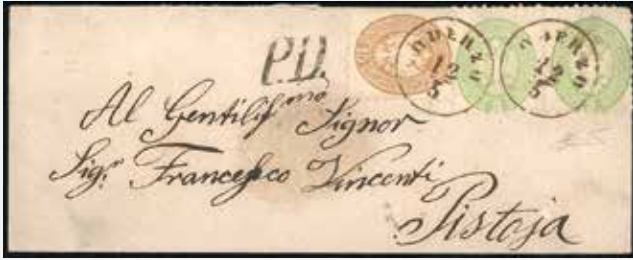 P.D.
ODERZO
12
5
ODERZO
12
5
Al Gentiliss.mo Signor
Sig.r Francesco Vincenti
Pistoja